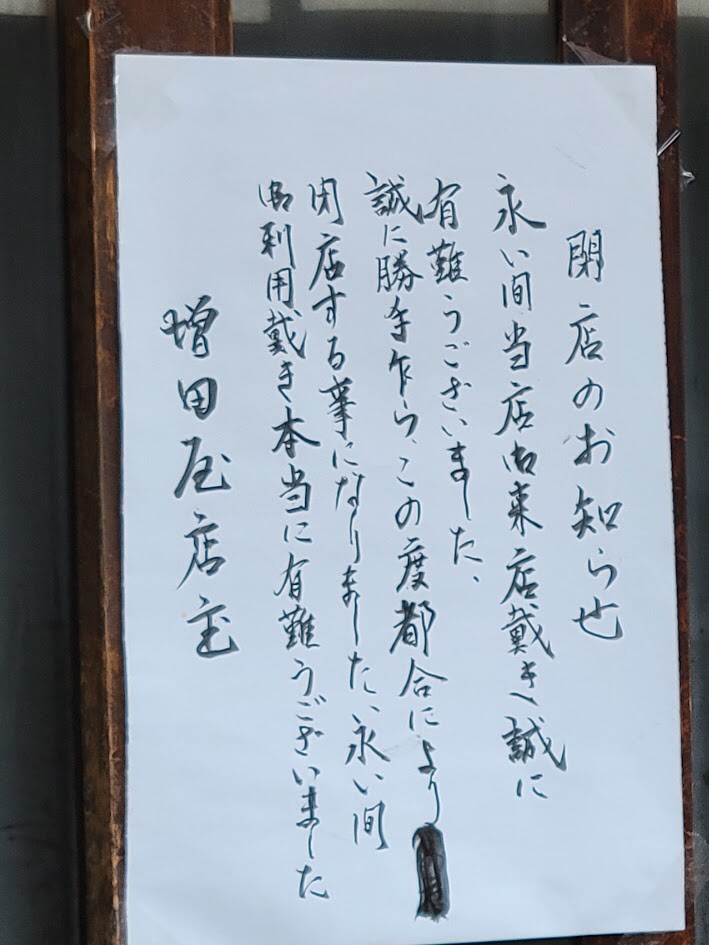 閉店のお知らせ
永い間当店御来店戴き誠に
有難うございました、
誠に勝手乍ら、この度都合により
閉店する事になりました、永い間
御利用戴き本当に有難うございました
増田屋店主